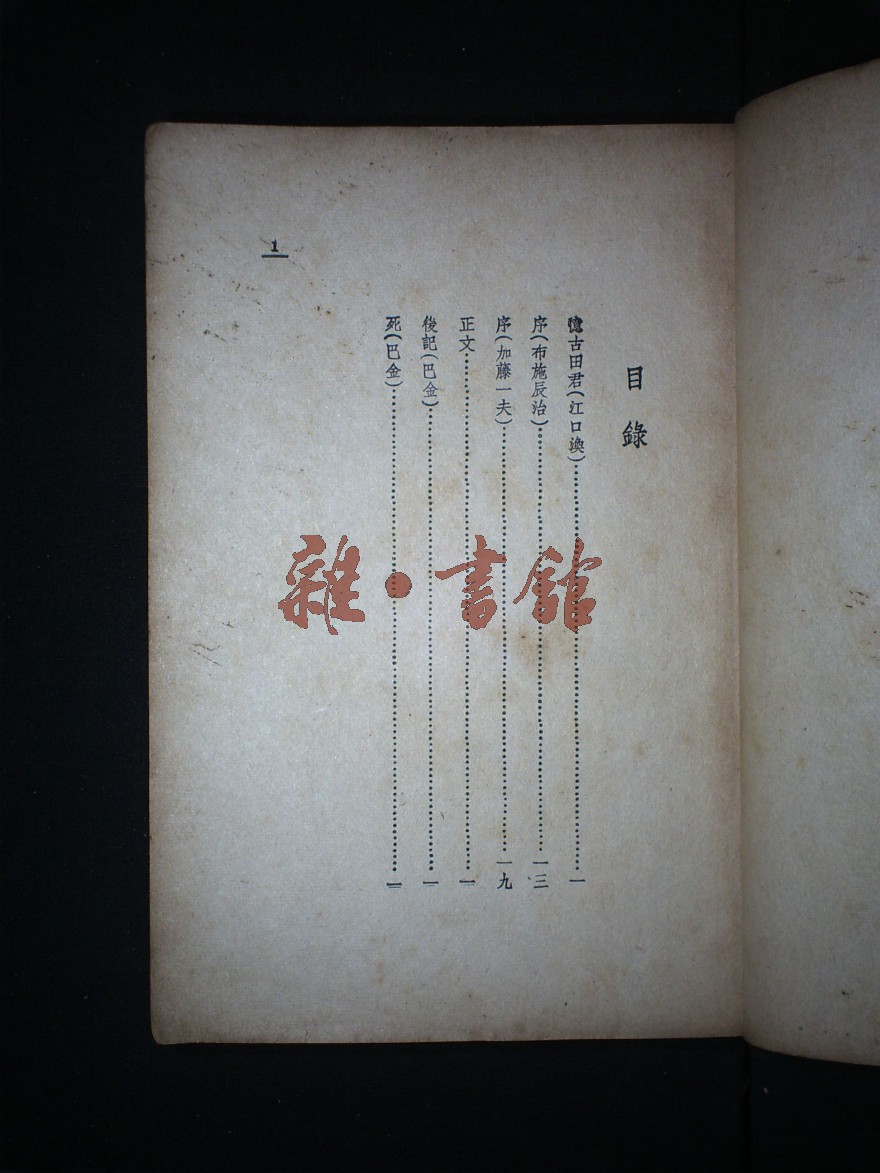 目錄
憶古田君(江口渙)……一
序(布施辰治)……一三
序(加藤一夫)……一九
正文……一
後記(巴金)……一
死(巴金)……三
1
雜·書館